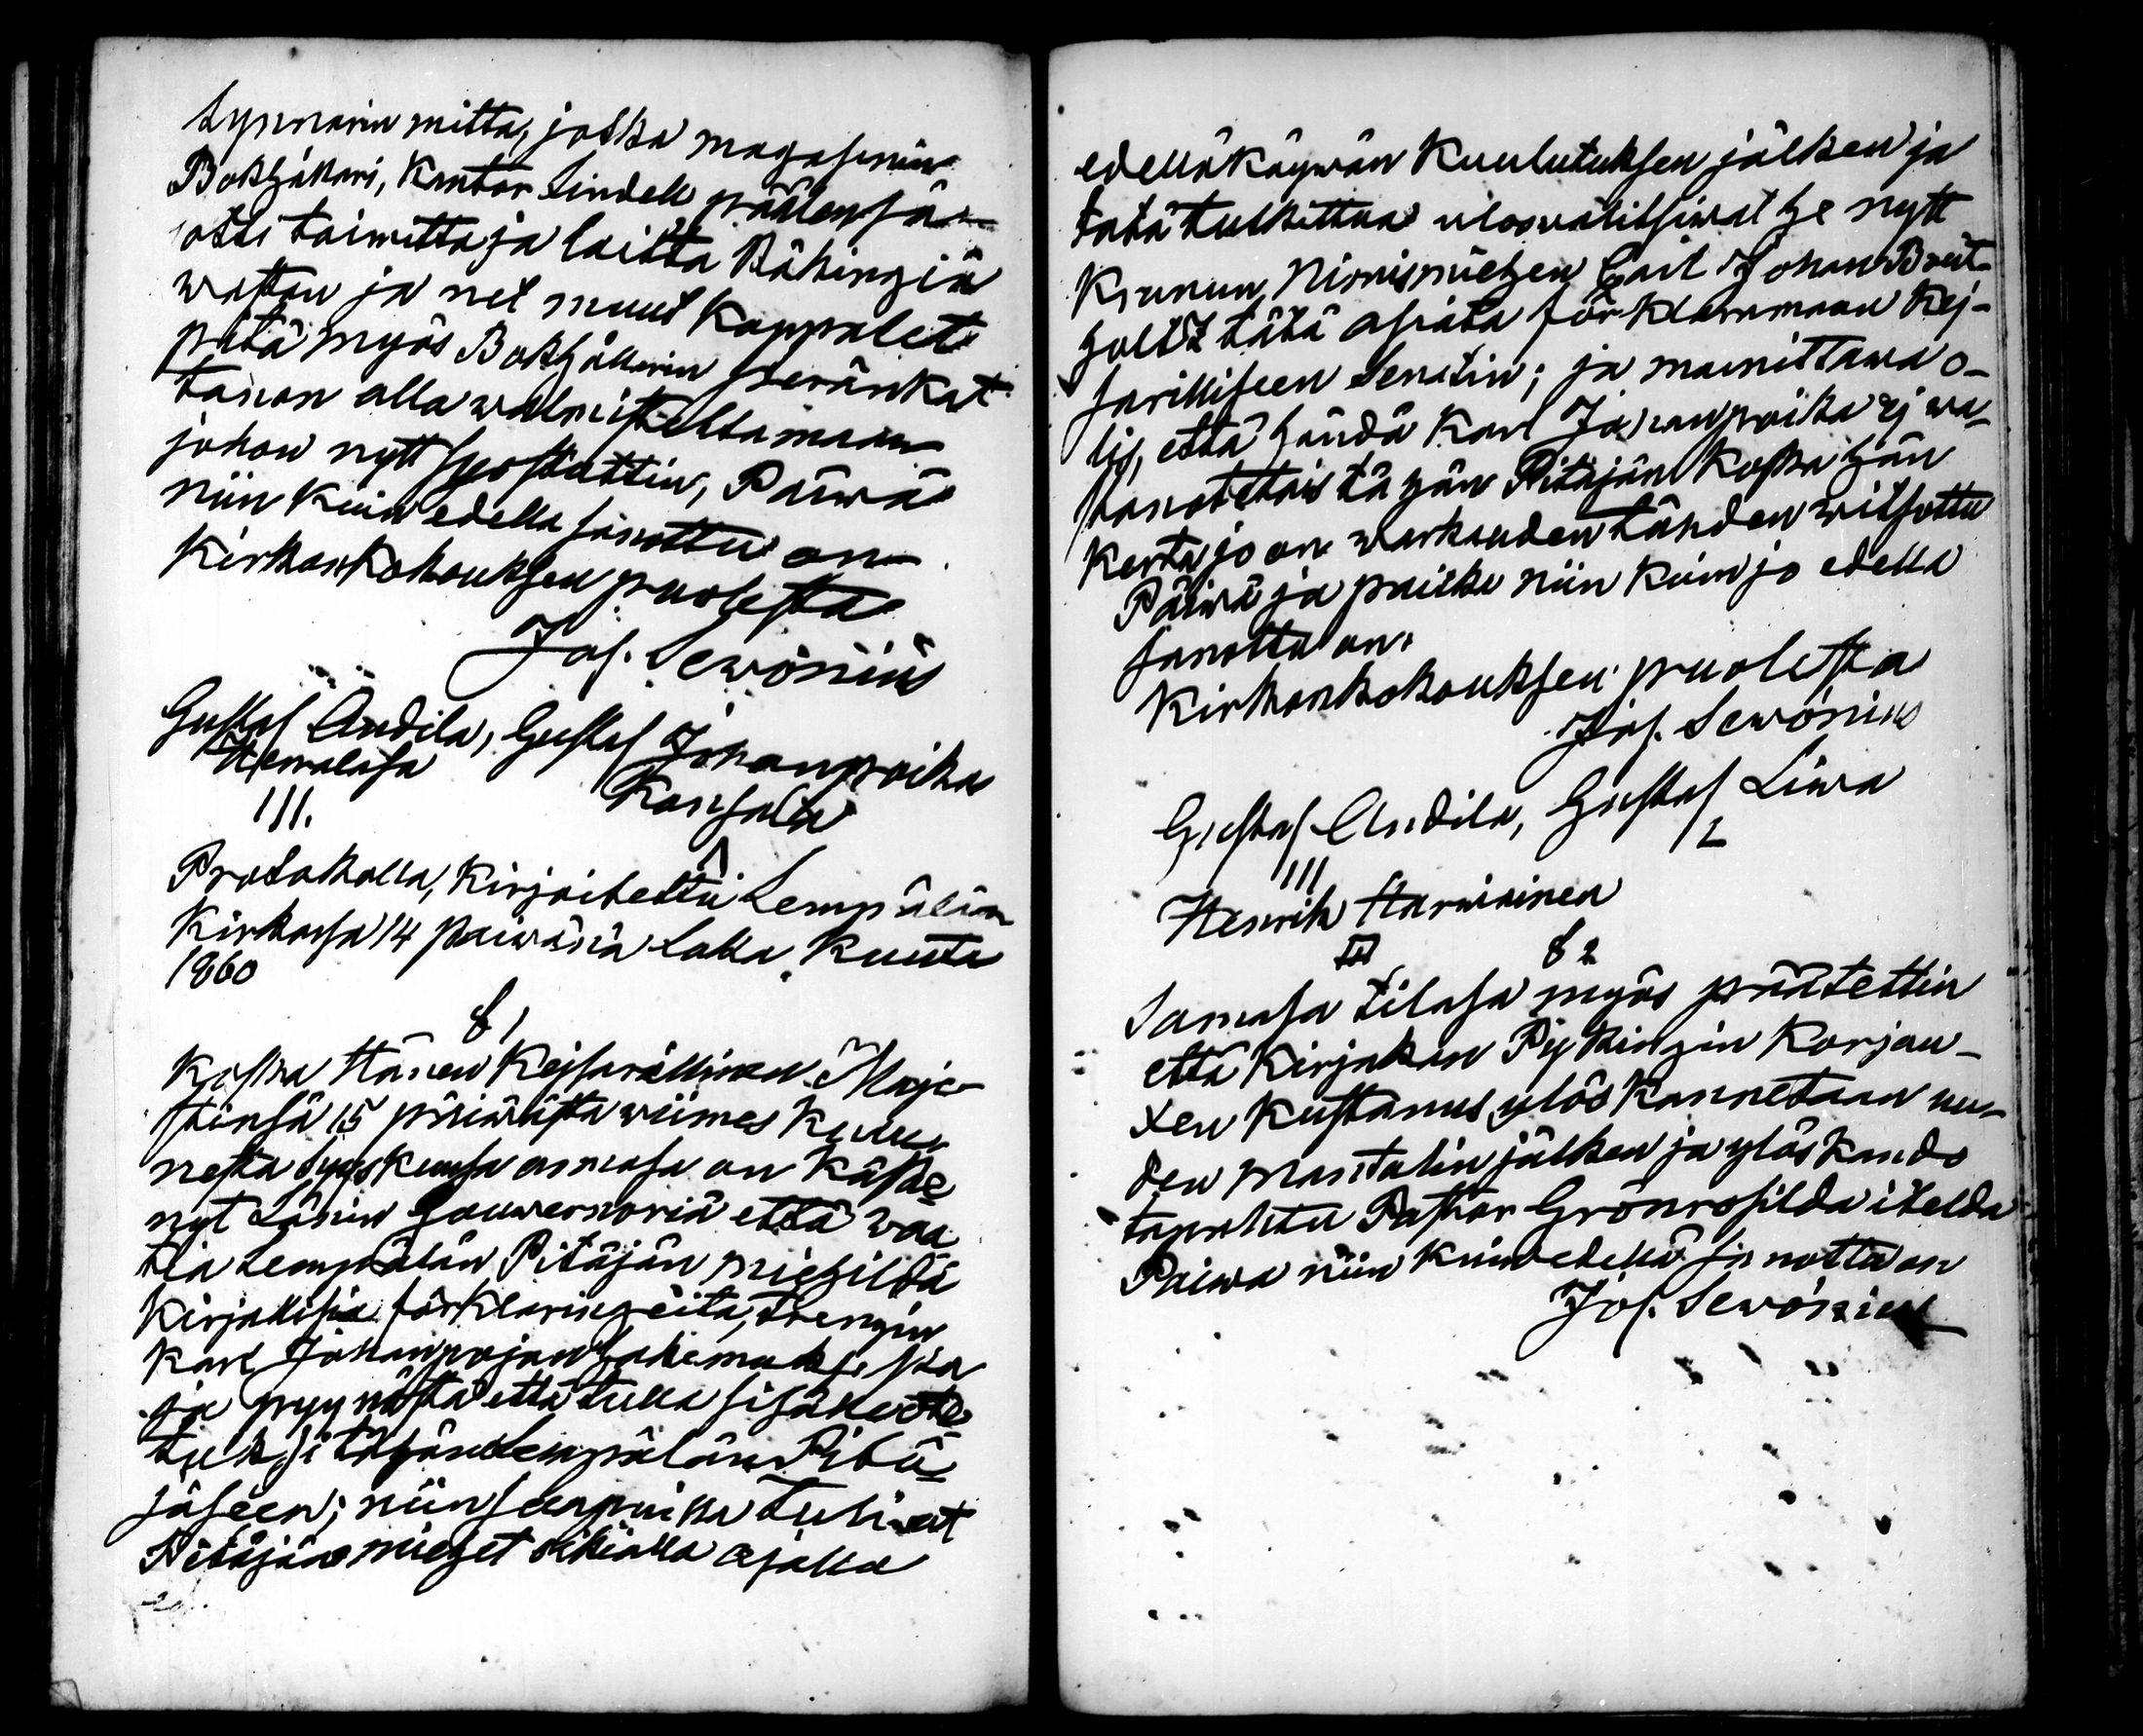 mitta, joska magasinin
Bokhållari, Kantor Lindell päällensä
otti toimitta ja laitta Räkingiä
wastan ja net muut kappalet
pitä myös Bokhållarin
tanon alla walmisteltaman
johon nytt suostuttin, Päiwä
niin kuin edellä sanottu on
Kirkonkokouksen puolesta
Jos. Sewónius
Gustaf Andila, Gustaf Johanpoika
Hemalasa Kansala
III.
Protokolla, kirjoitettu Lempälän
Kirkossa 14 päiwänä Loka Kuuta
1860
§ 1
Koska Hänen Kejsarillinen Maje-
stinsä 15 päiwästä wiimes kulu
nesta Syys Kuusa armosa on käske
nyt Länin Gouwernöriä että vaa
tia Lempälän Pitäjän miehildä
Kirjallisia förklaringeita, trengin
Karl Johanpojan hakemuksesta
ja pyynöstä että tulla sisälleote
tuksi tähän Lempälän Pitä
jäseen; niin sen puitta tulivat
Pitäjän miehet oikialla ajalla
edelläkäywän Kuulutuksen jälken ja
tätä tutkittua uloswalitsiwat he nytt
Krunun Nimismiehen Carl Johan Breit-
holtz tätä asiata förklaramaan Kej-
sarilliseen Senatin; ja mainittawa o-
lis, että händä Karl Johanpoika ej wa-
stanotetais tähän Pitäjän koska hän
kerta jo on warkauden tähden witsottu
Päiwä ja paikka niin kuin jo edellä
sanottu on.
Kirkonkokouksen puolesta
Jos. Sewónius
Gustaf Andila, Gustaf Liwa
III
Henrik Harwiainen
§ 2
Samasa tilasa myös päätettin
että Kirjakan Pykingin Korjau-
xen kustannus ylös kannetaan uu-
den Mantalin jälken ja ylös kando
tapahtu Pastor Grönrosilda itelda
Päiwä niin kuin edellä sanottu on
Jos. Sewónius